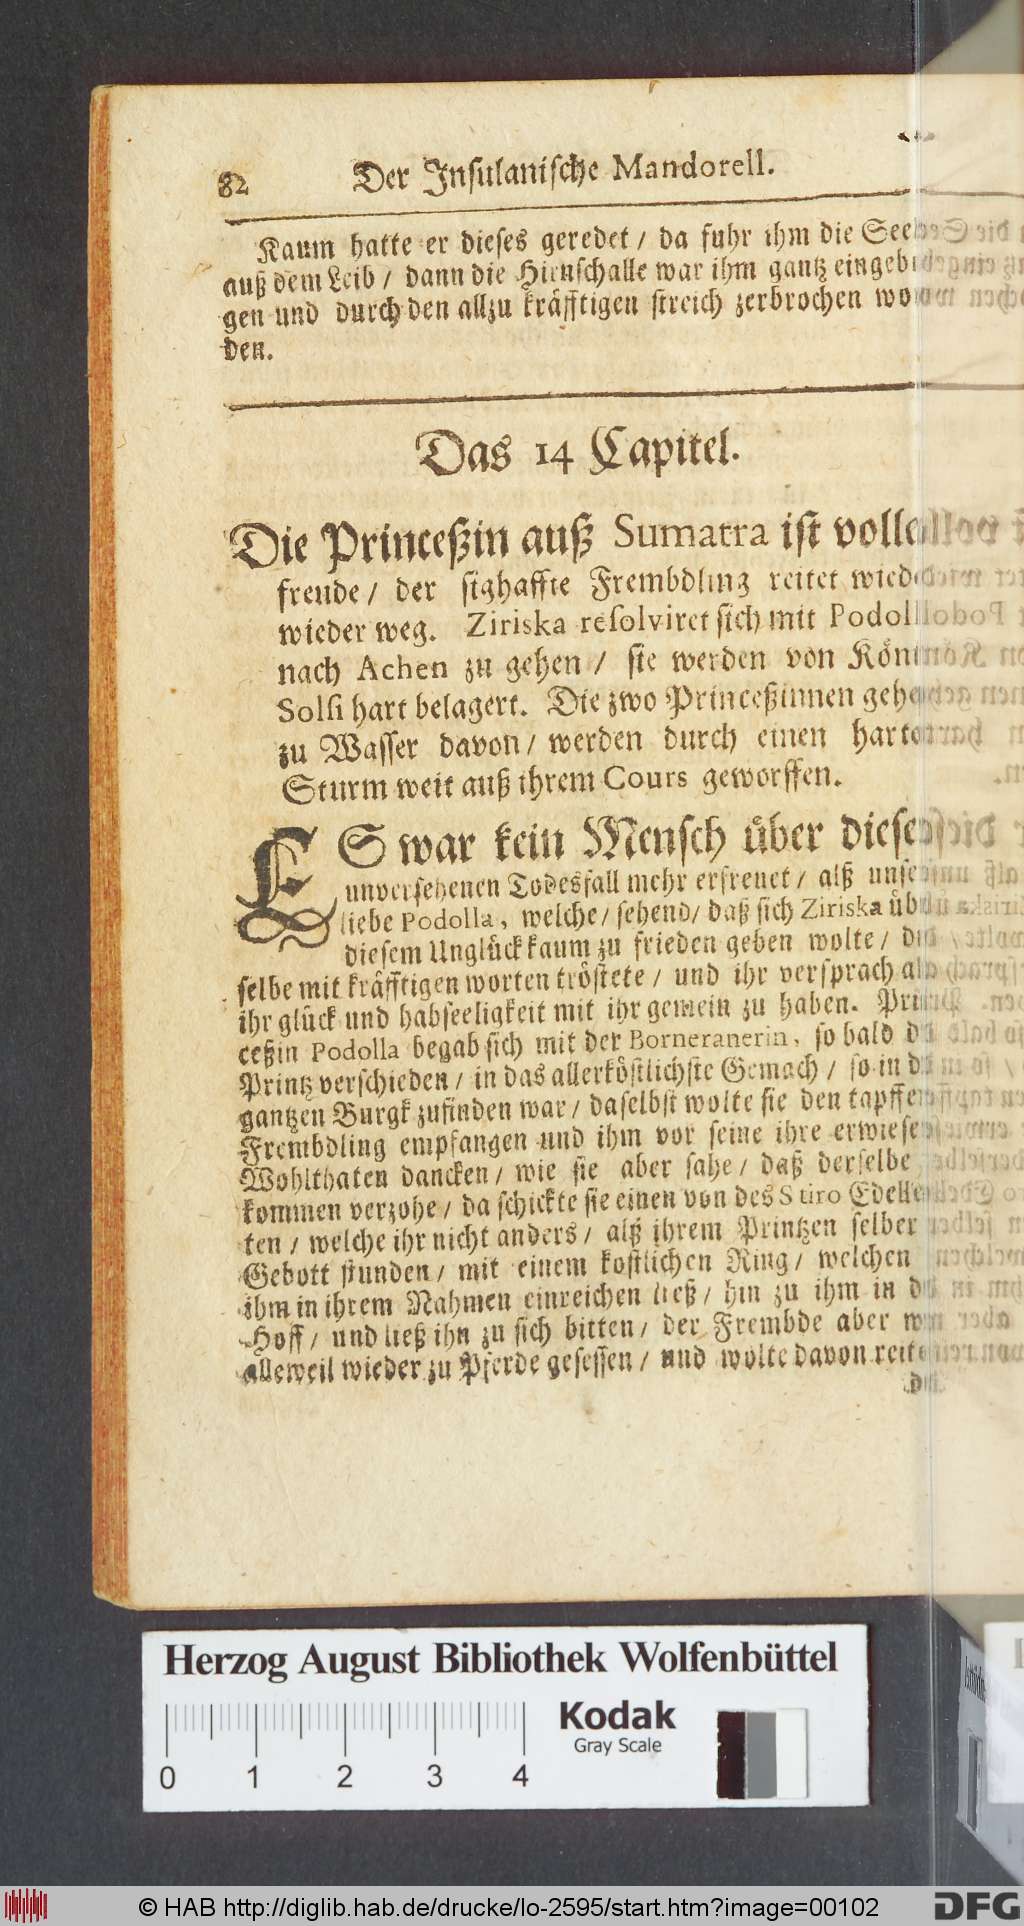 82 Der Insulanische Mandorell.
Kaum hatte er dieses geredet / da fuhr ihm die See
auß dem Leib / dann die Hirnschalle war ihm gantz eingeb
gen und durch den allzu kräfftigen streich zerbrochen wo
den.
Das 14 Capitel.
Die Princeßin auß Sumatra ist voll
freude / der sighaffte Frembdling reitet wied
wieder weg. Ziriska resolviret sich mit Podoll
nach Achen zu gehen / sie werden von Kön
Solsi hart belagert. Die zwo Princeßinnen geh
zu Wasser davon / werden durch einen harte
Sturm weit auß ihrem Cours geworffen.
ES war kein Mensch über diese
unversehenen Todesfall mehr erfreuet / alß unse
liebe Podolla, welche / sehend / daß sich Ziriska üb
diesem Unglück kaum zu frieden geben wolte / di
selbe mit kräfftigen worten tröstete / und ihr versprach al
ihr glück und habseeligkeit mit ihr gemein zu haben. Prin
ceßin Podolla begab sich mit der Borneranerin, so bald d
Printz verschieden / in das allerköstlichste Gemach / so in d
gantzen Burgk zufinden war / daselbst wolte sie den tapffe
Frembdling empfangen und ihm vor seine ihre erwiese
Wohlthaten dancken / wie sie aber sahe / daß derselbe
kommen verzohe / da schickte sie einen von des Stiro Edelle
ten / welche ihr nicht anders / alß ihrem Printzen selber
Gebott stunden / mit einem kostlichen Ring / welchen
ihm in ihrem Nahmen einreichen ließ / hin zu ihm in d
Hoff / und ließ ihn zu sich bitten / der Frembde aber w
alleweil wieder zu Pferde gesessen / und wolte davon reite
Herzog August Bibliothek Wolfenbüttel
Kodak
Gray Scale
0 1 2 3 4
© HAB http://diglib.hab.de/drucke/lo-2595/start.htm?image=00102
DFG